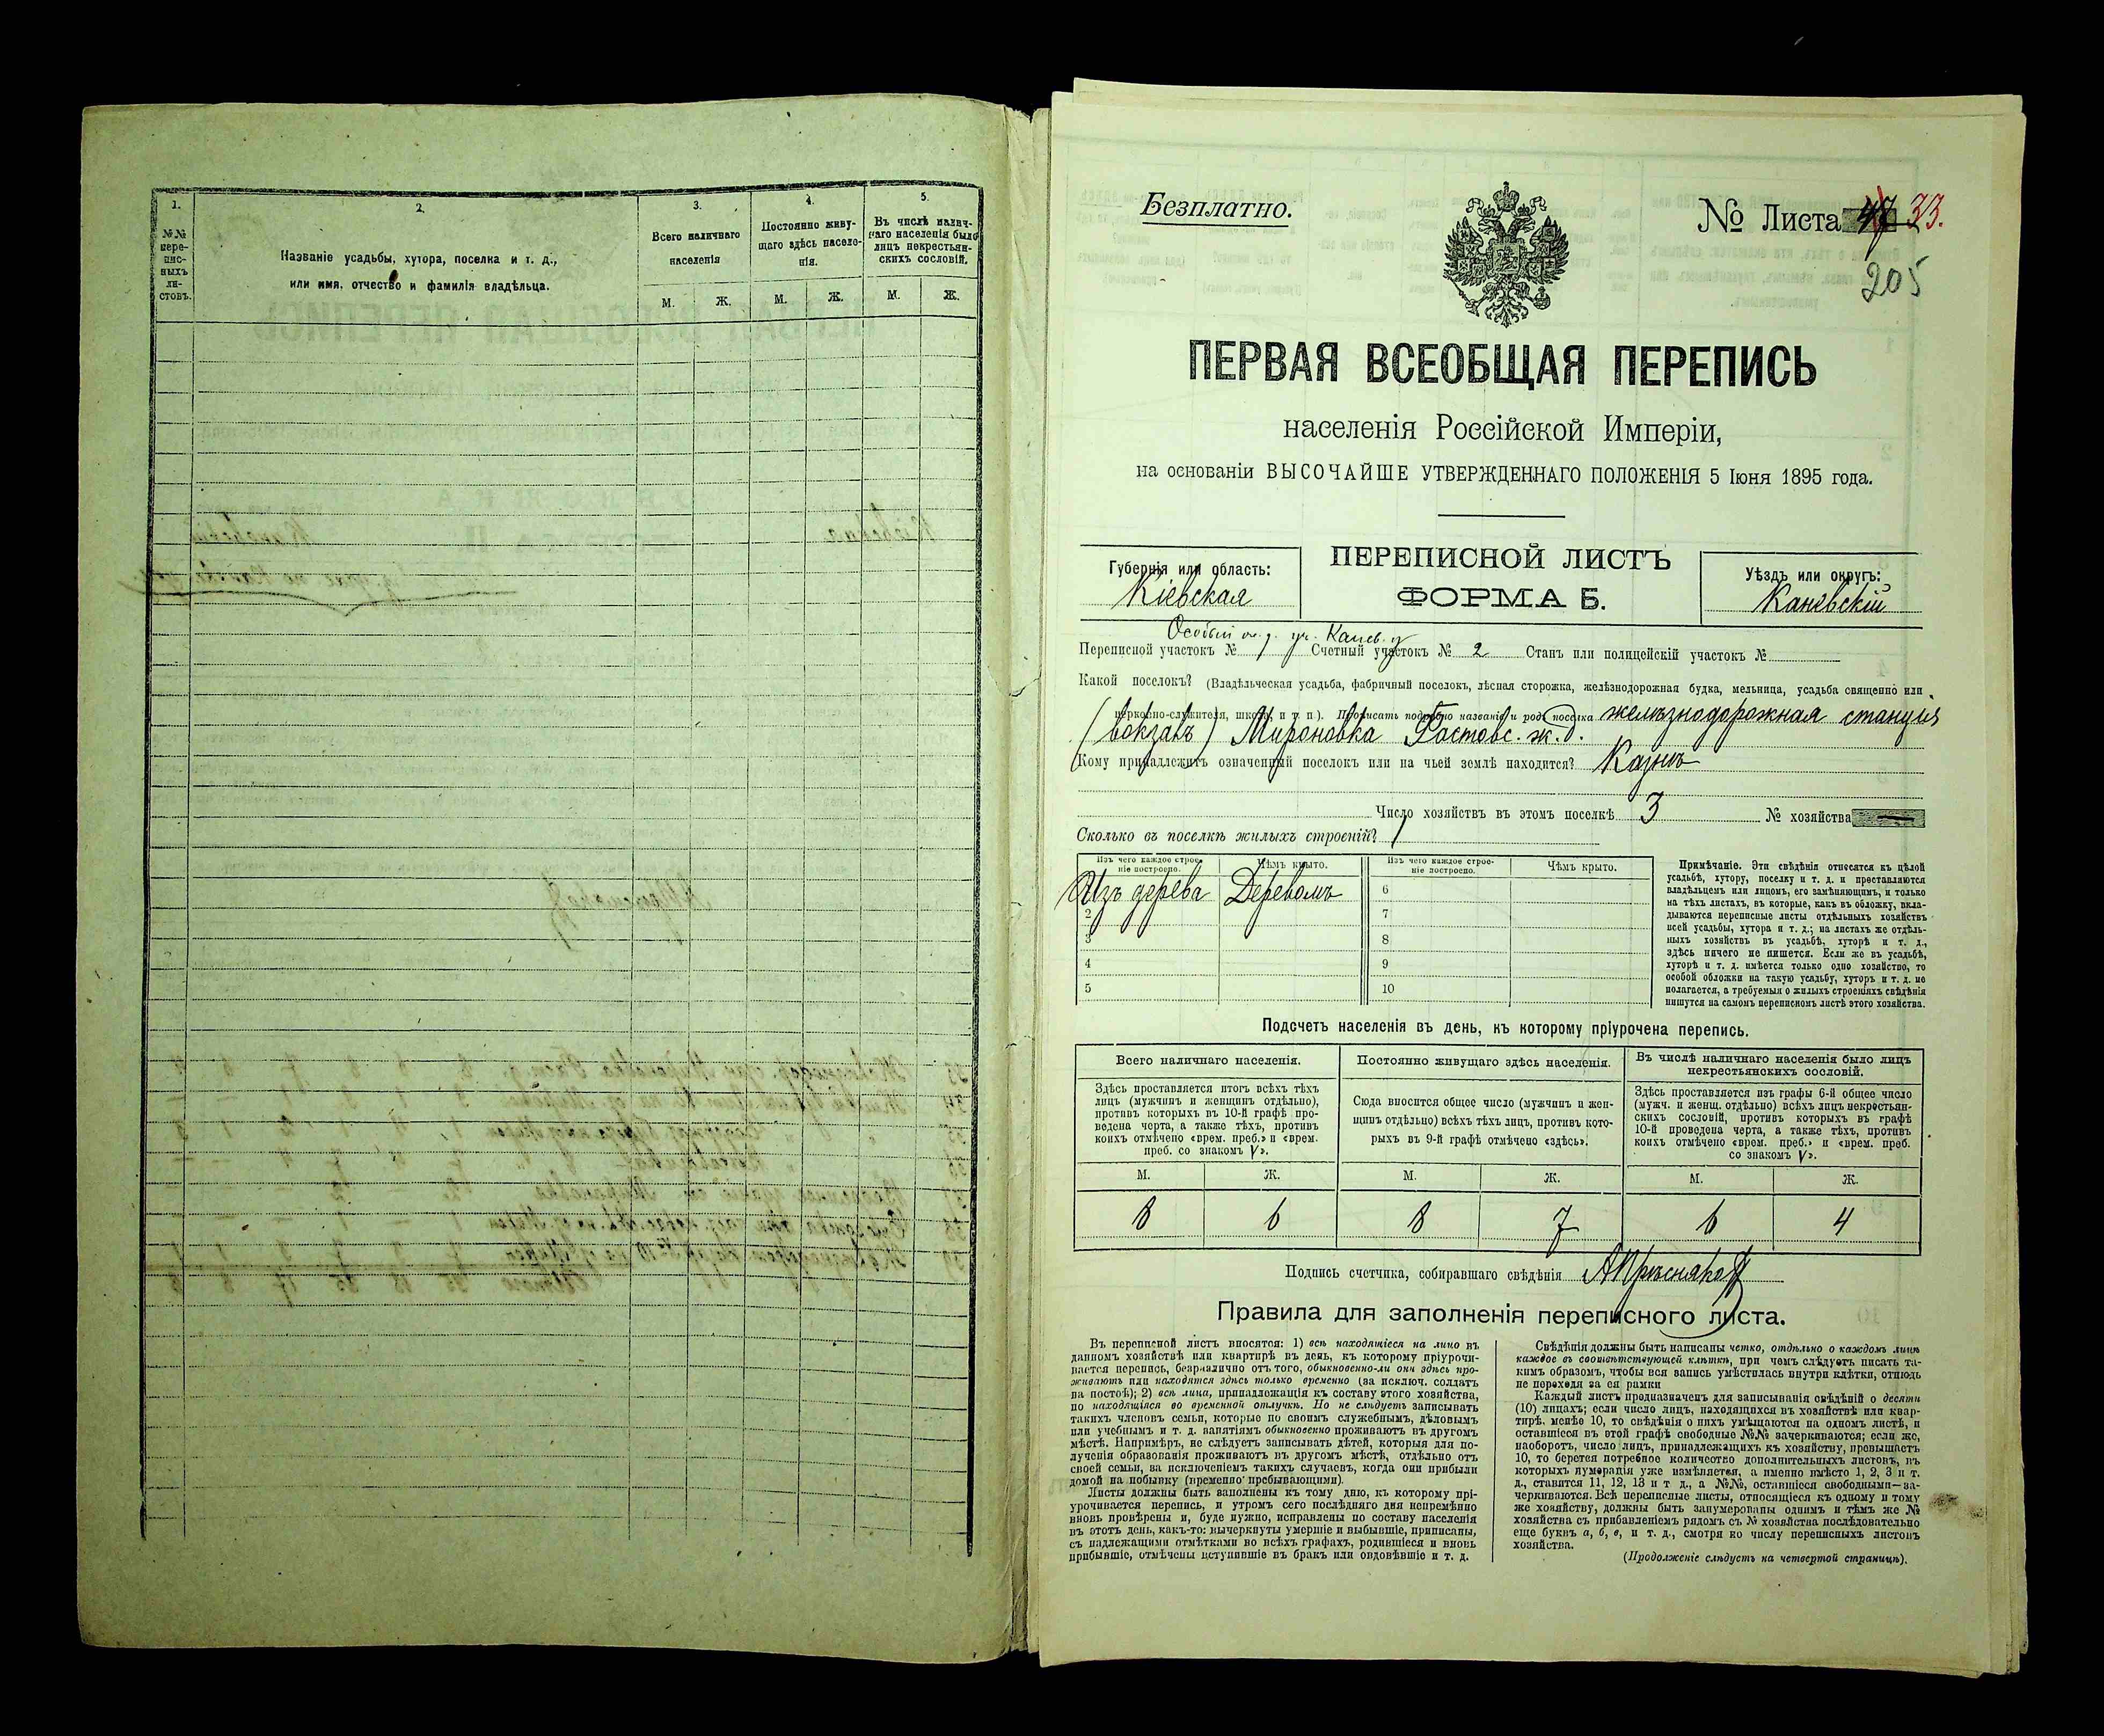 1.
2.
3.
4.
5.
№№ пере-
пис-
ныхъ
ли-
стовъ.
Названіе усадьбы, хутора, поселка и т. д.,
или имя, отчество и фамилія владѣльца.
Всего наличнаго
населенія
Постоянно живу-
щаго здѣсь населе-
нія.
Въ числѣ налич-
наго населенія было
лицъ некрестьян-
скихъ сословій.
М. Ж. М. Ж. М. Ж.
Безплатно.
№ Листа 47 33.
205
ПЕРВАЯ ВСЕОБЩАЯ ПЕРЕПИСЬ
населенія Россійской Имперіи,
на основаніи ВЫСОЧАЙШЕ УТВЕРЖДЕННАГО ПОЛОЖЕНІЯ 5 Іюня 1895 года.
Губернія или область:
Кіевская
ПЕРЕПИСНОЙ ЛИСТЪ
ФОРМА Б.
Уѣздъ или округъ:
Каневскій
Особый уч. Канев. у
Переписной участокъ № 1 Счетный участокъ № 2 Станъ или полицейскій участокъ №
Какой поселокъ? (Владѣльческая усадьба, фабричный поселокъ, лѣсная сторожка, желѣзнодорожная будка, мельница, усадьба священно или
церковно-служителя, школа, и т. п.). Прописать подробно названіе и родъ поселка желѣзнодорожная станція
(вокзалъ) Мироновка Фастовс. ж. д.
Кому принадлежитъ означенный поселокъ или на чьей землѣ находится? Казнѣ
Число хозяйствъ въ этомъ поселкѣ 3 № хозяйства
Сколько въ поселкѣ жилыхъ строеній? 1
Изъ чего каждое строе-
ніе построено.
Чѣмъ крыто.
Изъ чего каждое строе-
ніе построено.
Чѣмъ крыто.
Изъ дерева Деревомъ 6
2 7
3 8
4 9
5 10
Примѣчаніе. Эти свѣдѣнія относятся къ цѣлой
усадьбѣ, хутору, поселку и т. д. и преставляются
владѣльцемъ или лицомъ, его замѣняющимъ, и только
на тѣхъ листахъ, въ которые, какъ въ обложку, вкла-
дываются переписные листы отдѣльныхъ хозяйствъ
всей усадьбы, хутора и т. д.; на листахъ же отдѣль-
ныхъ хозяйствъ въ усадьбѣ, хуторѣ и т. д.,
здѣсь ничего не пишется. Если же въ усадьбѣ,
хуторѣ и т. д. имѣется только одно хозяйство, то
особой обложки на такую усадьбу, хуторъ и т. д. не
полагается, а требуемыя о жилыхъ строеніяхъ свѣдѣнія
пишутся на самомъ переписномъ листѣ этого хозяйства.
Подсчетъ населенія въ день, къ которому пріурочена перепись.
Всего наличнаго населенія.
Постоянно живущаго здѣсь населенія.
Въ числѣ наличнаго населенія было лицъ
некрестьянскихъ сословій.
Здѣсь проставляется итогъ всѣхъ тѣхъ
лицъ (мужчинъ и женщинъ отдѣльно),
противъ которыхъ въ 10-й графѣ про-
ведена черта, а также тѣхъ, противъ
коихъ отмѣчено «врем. преб.» и «врем.
преб. со знакомъ V».
Сюда вносится общее число (мужчинъ и жен-
щинъ отдѣльно) всѣхъ тѣхъ лицъ, противъ кото-
рыхъ въ 9-й графѣ отмѣчено «здѣсь».
Здѣсь проставляется изъ графы 6-й общее число
(мужч. и женщ. отдѣльно) всѣхъ лицъ некрестьян-
скихъ сословій, противъ которыхъ въ графѣ
10-й проведена черта, а также тѣхъ, противъ
коихъ отмѣчено «врем. преб.» и «врем. преб.
со знакомъ V».
М. Ж. М. Ж. М. Ж.
8 6 8 7 6 4
Подпись счетчика, собиравшаго свѣдѣнія АПрѣсняков
Правила для заполненія переписного листа.
Въ переписной листъ вносятся: 1) всѣ находящіеся на лицо въ
данномъ хозяйствѣ или квартирѣ въ день, къ которому пріурочи-
вается перепись, безразлично отъ того, обыкновенно-ли они здѣсь про-
живаютъ или находятся здѣсь только временно (за исключ. солдатъ
на постоѣ); 2) всѣ лица, принадлежащія къ составу этого хозяйства,
но находящіяся во временной отлучкѣ. Но не слѣдуетъ записывать
такихъ членовъ семьи, которые по своимъ служебнымъ, дѣловымъ
или учебнымъ и т. д. занятіямъ обыкновенно проживаютъ въ другомъ
мѣстѣ. Напримѣръ, не слѣдуетъ записывать дѣтей, которыя для по-
лученія образованія проживаютъ въ другомъ мѣстѣ, отдѣльно отъ
своей семьи, за исключеніемъ такихъ случаевъ, когда они прибыли
домой на побывку (временно пребывающими).
Листы должны быть заполнены къ тому дню, къ которому прі-
урочивается перепись, и утромъ сего послѣдняго дня непремѣнно
вновь провѣрены и, буде нужно, исправлены по составу населенія
въ этотъ день, какъ-то: вычеркнуты умершіе и выбывшіе, приписаны,
съ надлежащими отмѣтками во всѣхъ графахъ, родившіеся и вновь
прибывшіе, отмѣчены вступившіе въ бракъ или овдовѣвшіе и т. д.
Свѣдѣнія должны быть написаны четко, отдѣльно о каждомъ лицѣ
каждое въ соотвѣтствующей клѣткѣ, при чемъ слѣдуетъ писать та-
кимъ образомъ, чтобы вся запись умѣстилась внутри клѣтки, отнюдь
не переходя за ея рамки
Каждый листъ предназначенъ для записыванія свѣдѣній о десяти
(10) лицахъ; если число лицъ, находящихся въ хозяйствѣ или квар-
тирѣ, менѣе 10, то свѣдѣнія о нихъ умѣщаются на одномъ листѣ, и
оставшіеся въ этой графѣ свободные №№ зачеркиваются; если же,
наоборотъ, число лицъ, принадлежащихъ къ хозяйству, превышаетъ
10, то берется потребное количество дополнительныхъ листовъ, въ
которыхъ нумерація уже измѣняется, а именно вмѣсто 1, 2, 3 и т.
д., ставится 11, 12, 13 и т д., а №№, оставшіеся свободными—за-
черкиваются. Всѣ переписные листы, относящіеся къ одному и тому
же хозяйству, должны быть занумерованы однимъ и тѣмъ же №
хозяйства съ прибавленіемъ рядомъ съ № хозяйства послѣдовательно
еще буквъ а, б, в, и т. д., смотря по числу переписныхъ листовъ
хозяйства.
(Продолженіе слѣдуетъ на четвертой страницѣ).